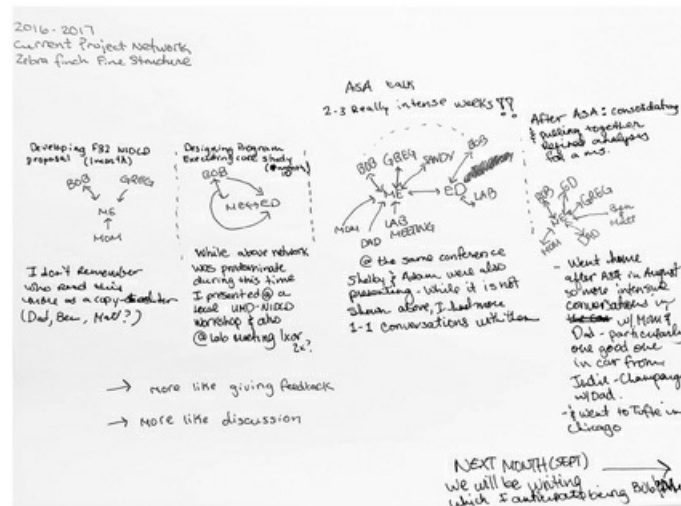 2016-2017
Current Project Network
Zebra finch Fine Structure
Developing F32 NIDCD
proposal (1 month)
BOB GREG
ME
MOM
I don't remember
who read this
as a copy-
(Dad, Ben, Matt?)
Designing Program
Executing core study
BOB
ME ED
While above network
was predominate
during this time
I presented @ a
local UMD-NIDCD
workshop & also
@ lab meeting 1x or
2x?
ASA talk
2-3 Really intense weeks!!
BOB GREG SANDY BOB
ME ED
MOM DAD LAB MEETING LAB
@ the same conference
Shelby & Adam were also
presenting - While it is not
shown above, I had more
1-1 conversations with them
After ASA: consolidating
& pulling together
refined analyses
for a ms.
BOB ED GREG
ME Ben
Matt
MOM DAD
- Went home
after ASA in August
so more intensive
conversations in
w/ Mom &
Dad - particularly
one good one
in car from
Indie - Champaign
w/ Dad.
- & went to Tufte in
Chicago
→ More like giving feedback
→ More like discussion
NEXT MONTH (SEPT) →
we will be writing
which I anticipate being Bob